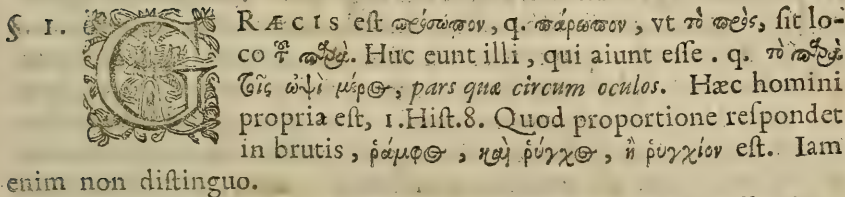 §. 1. GRÆCIS eſt πρόσωπον, q. πάρωπον, vt τὸ πρὸς, ſit lo-
co τȣ͂ παρὰ. Huc eunt illi, qui aiunt eſſe. q. τὸ παρὰ
τοῖς ὠψὶ μέρος, pars quæ circum oculos. Hæc homini
propria eſt, 1.Hiſt.8. Quod proportione reſpondet
in brutis, ῥάμφος, καὶ ῥύγχος, ἢ ῥυγχίον eſt. Iam
enim non diſtinguo.